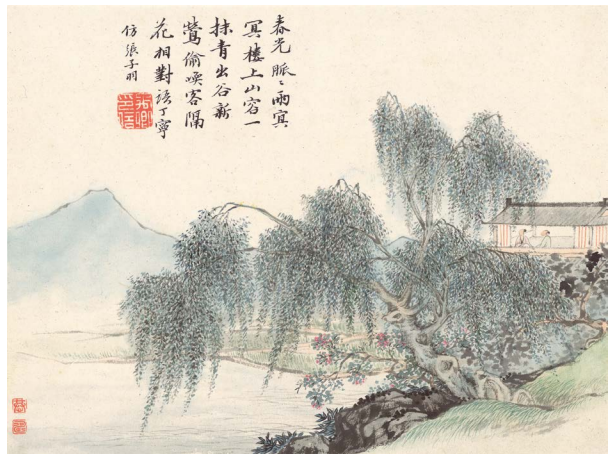 春光脈々雨寅
冥樓上山容一
抹青出谷新
鶯偷喚客隔
花相對語丁寧
仿張子羽